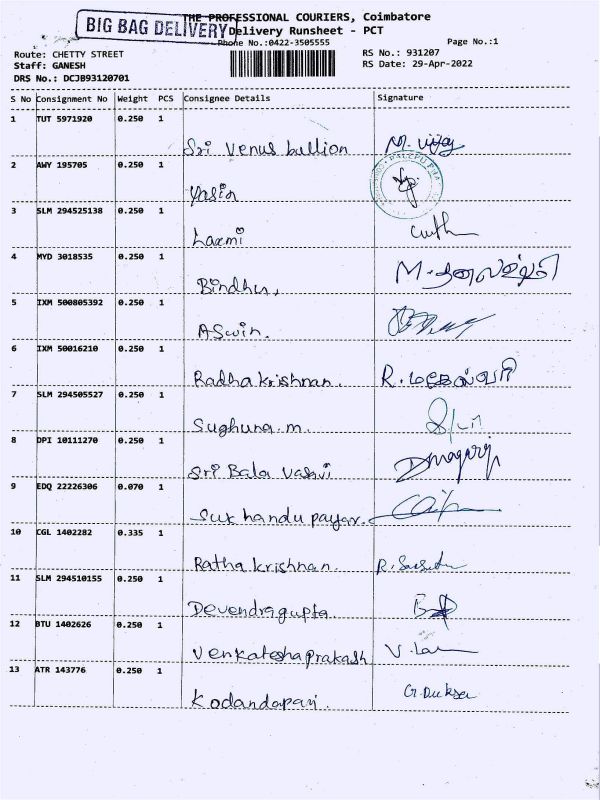 BIG BAG DELIVERY
THE PROFESSIONAL COURIERS, Coimbatore
Delivery Runsheet - PCT
Phone No.:0422-3505555
Page No.:1
Route: CHETTY STREET
RS No.: 931207
Staff: GANESH
RS Date: 29-Apr-2022
DRS No.: DCJB93120701
S No Consignment No Weight PCS Consignee Details Signature
1 TUT 5971920 0.250 1
Sri Venus bullion M. Vijay
2 AWY 195705 0.250 1
Yasin
3 SLM 294525138 0.250 1
Laxmi
4 MYD 3018535 0.250 1
Bindhu,
5 IXM 500805392 0.250 1
Aswin.
6 IXM 50016210 0.250 1
Radha krishnan. R. மகேஸ்வரி
7 SLM 294505527 0.250 1
Sughuna.m.
8 DPI 10111270 0.250 1
Sri Bala vashi
9 EDQ 22226306 0.070 1
Suk handu payar.
10 CGL 1402282 0.335 1
Ratha krishnan.
11 SLM 294510155 0.250 1
Devendra gupta.
12 BTU 1402626 0.250 1
Venkateshaprakash
13 ATR 143776 0.250 1
Kodandapani.